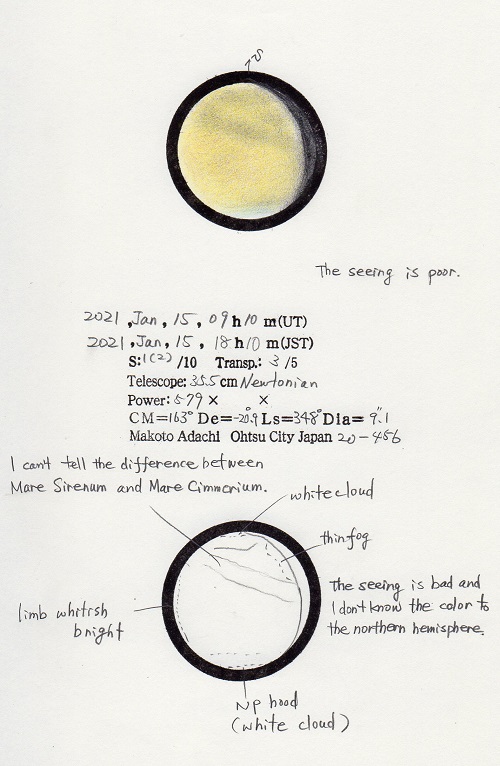 The seeing is poor.
2021, Jan, 15, 09 h 10 m (UT)
2021, Jan, 15, 18 h 10 m (JST)
S: 1(2) /10 Transp.: 3 /5
Telescope: 355 cm Newtonian
Power: 579 × ×
CM=163° De=-20.9° Ls=348° Dia= 9".1
Makoto Adachi Ohtsu City Japan 20-456
I can't tell the difference between
Mare Sirenum and Mare Cimmerium.
white cloud
thin fog
The seeing is bad and
I don't know the color to
the northern hemisphere.
limb whitish
bright
NP hood
(white cloud)